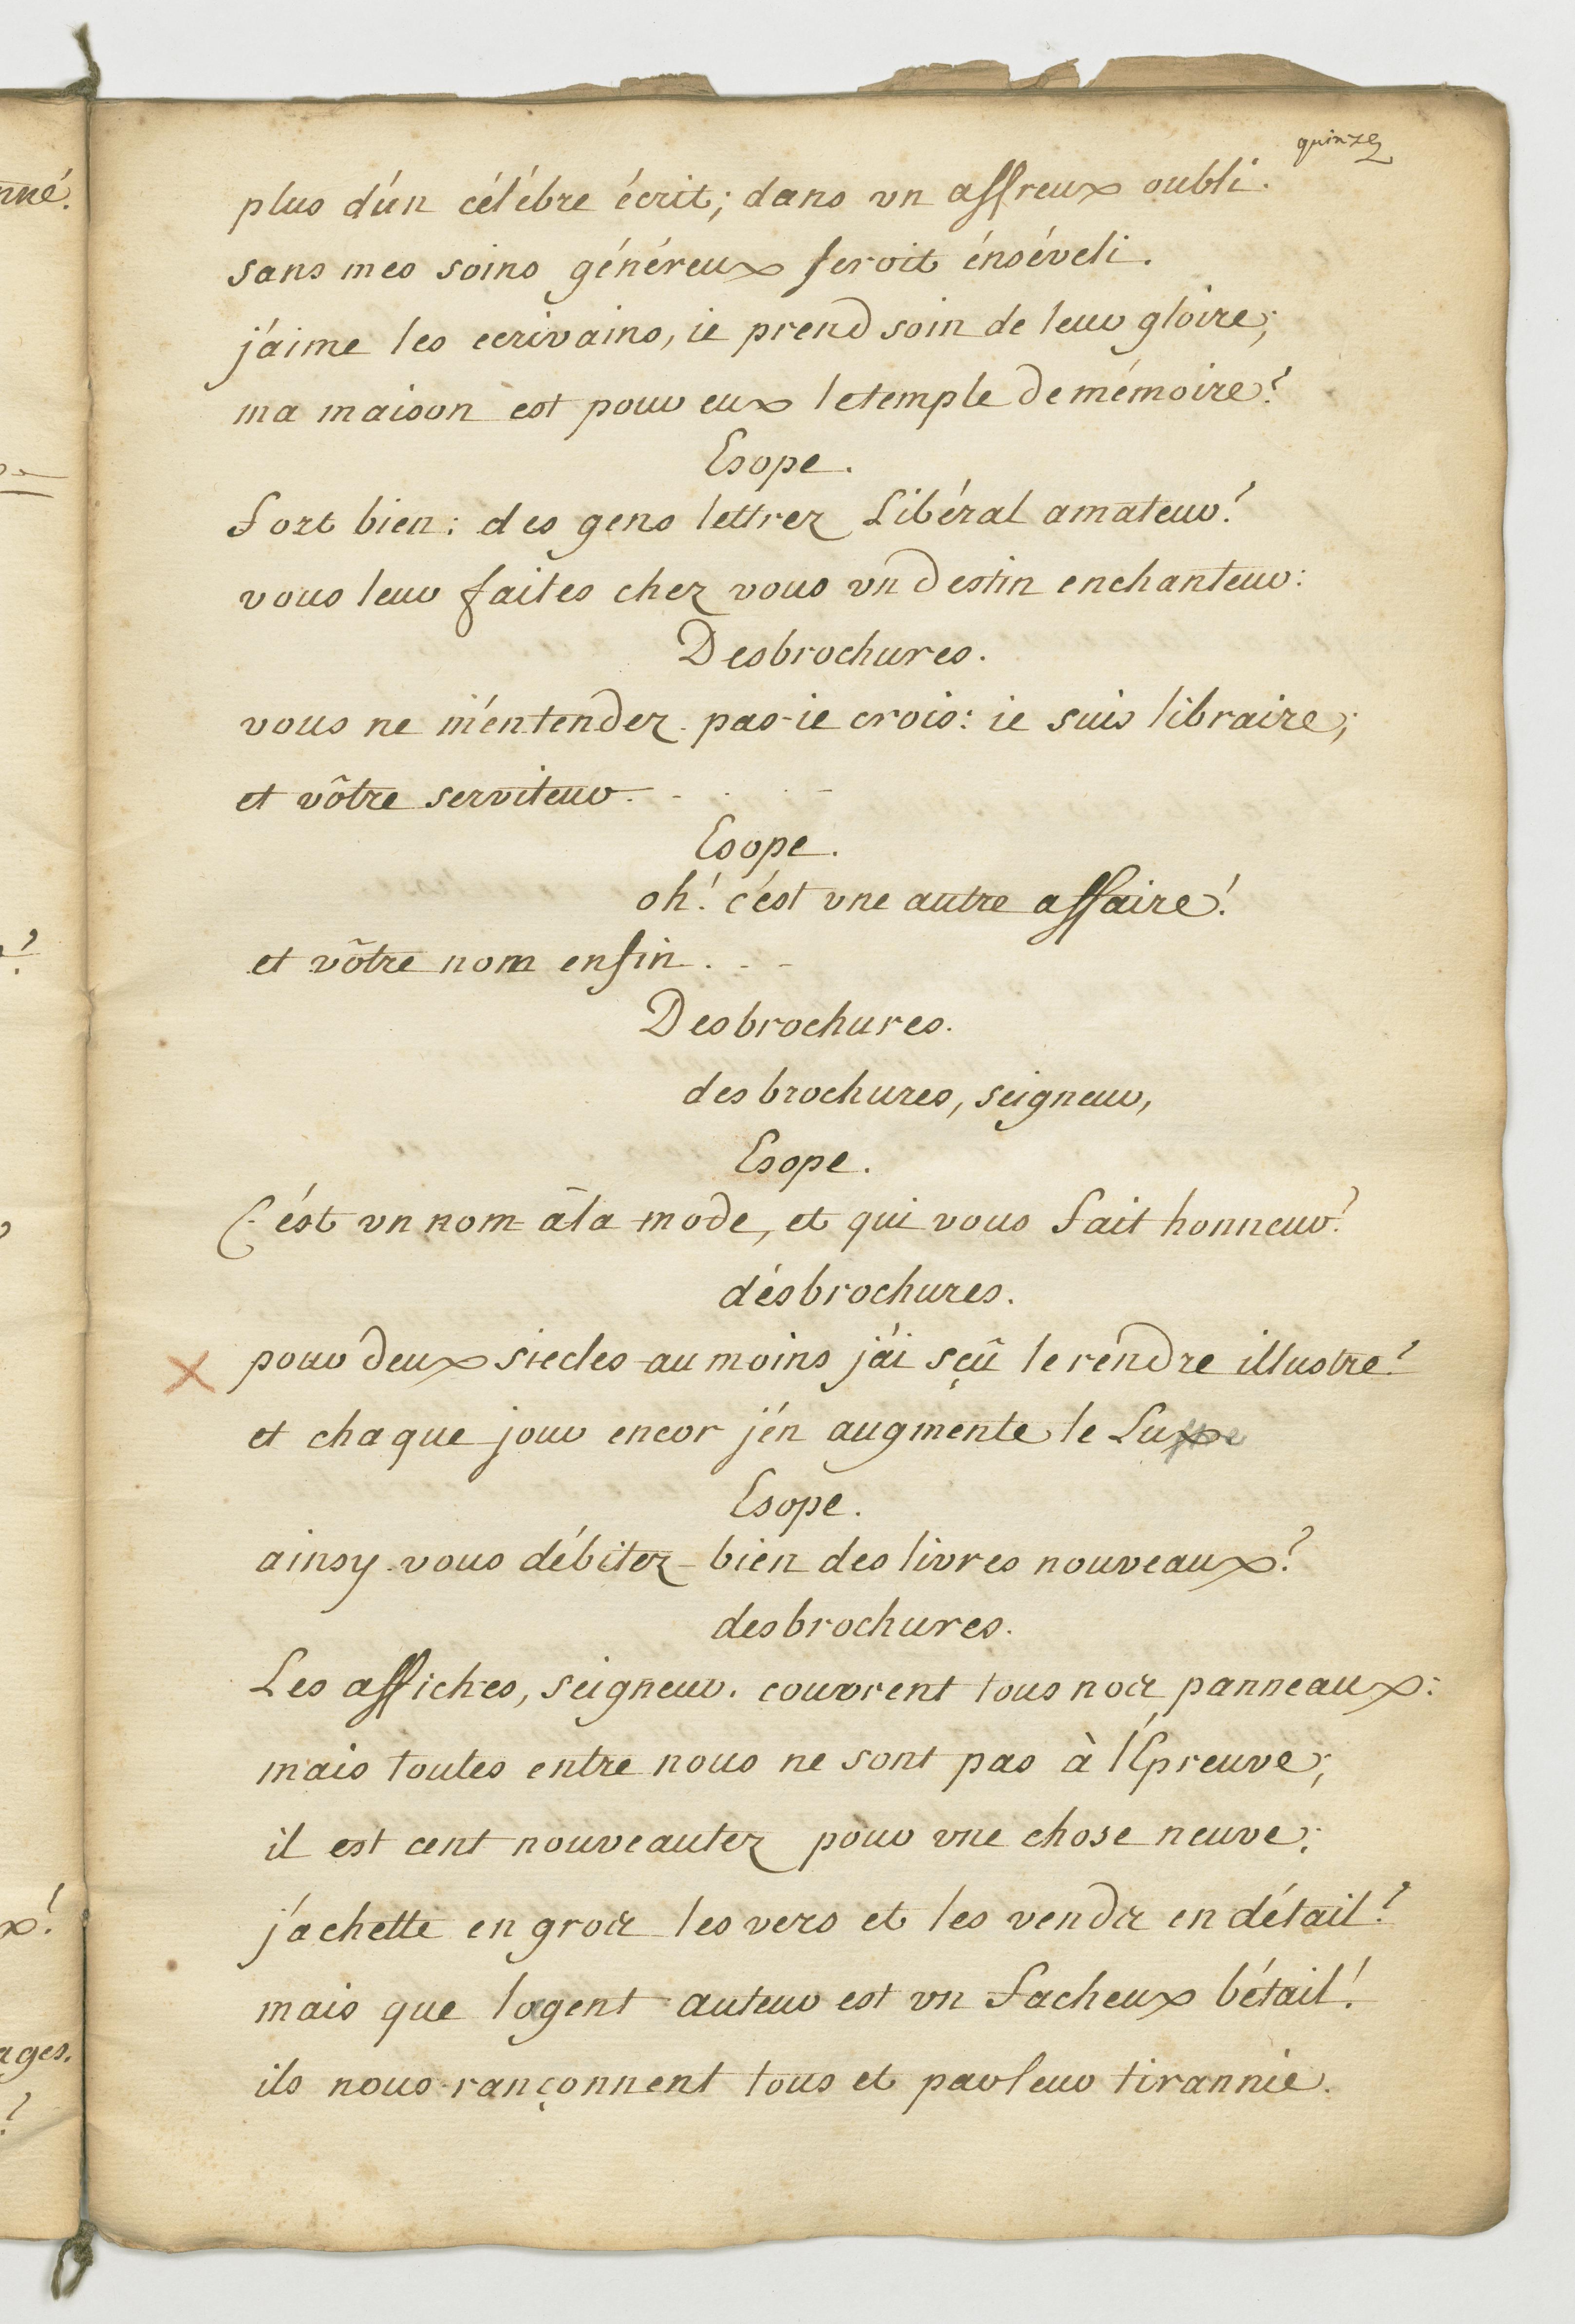 quinze
plus d'un célébre écrit; dans vn affreux oubli.
sans mes soins généreux seroit énséveli.
j'aime les ecrivains, ie prend soin de leur gloire;
ma maison est pour eux le temple de mémoire?
Esope.
fort bien: des gens lettrez Libéral amateur!
vous leur faites chez vous vn destin enchanteur:
Desbrochures.
vous ne m'entendez pas ie crois: ie suis libraire;
et vôtre serviteur. - . . . -
Esope.
oh! c'est vne autre affaire!
et vôtre nom enfin. - -
Desbrochures.
des brochures, seigneur,
Esope.
C'ést vn nom à la mode, et qui vous fait honneur?
désbrochures.
pour deux siecles au moins j'ai sçû le réndre illustre?
et chaque jour encor j'én augmente le
Esope.
ainsy vous débitez bien des livres nouveaux?
desbrochures.
Les affiches, seigneur. couvrent tous nos panneaux:
mais toutes entre nous ne sont pas à l'Épreuve;
il est cent nouveautez pour vne chose neuve;
j'achette en gros les vers et les vends en détail?
mais que l'agent auteur est vn facheux bétail!
ils nous rançonnent tous et par leur tirannie.
nné.
ages.